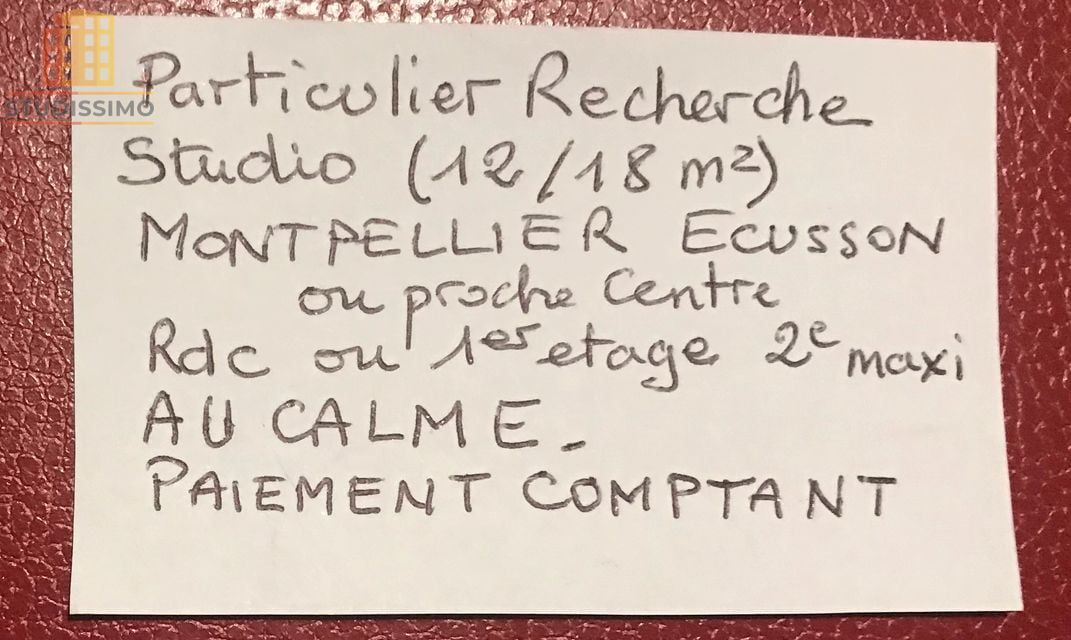 STUDISSIMO
Particulier Recherche
Studio (12/18 m²)
MONTPELLIER ECUSSON
ou proche Centre
Rdc ou 1er etage 2e maxi
AU CALME_
PAIEMENT COMPTANT